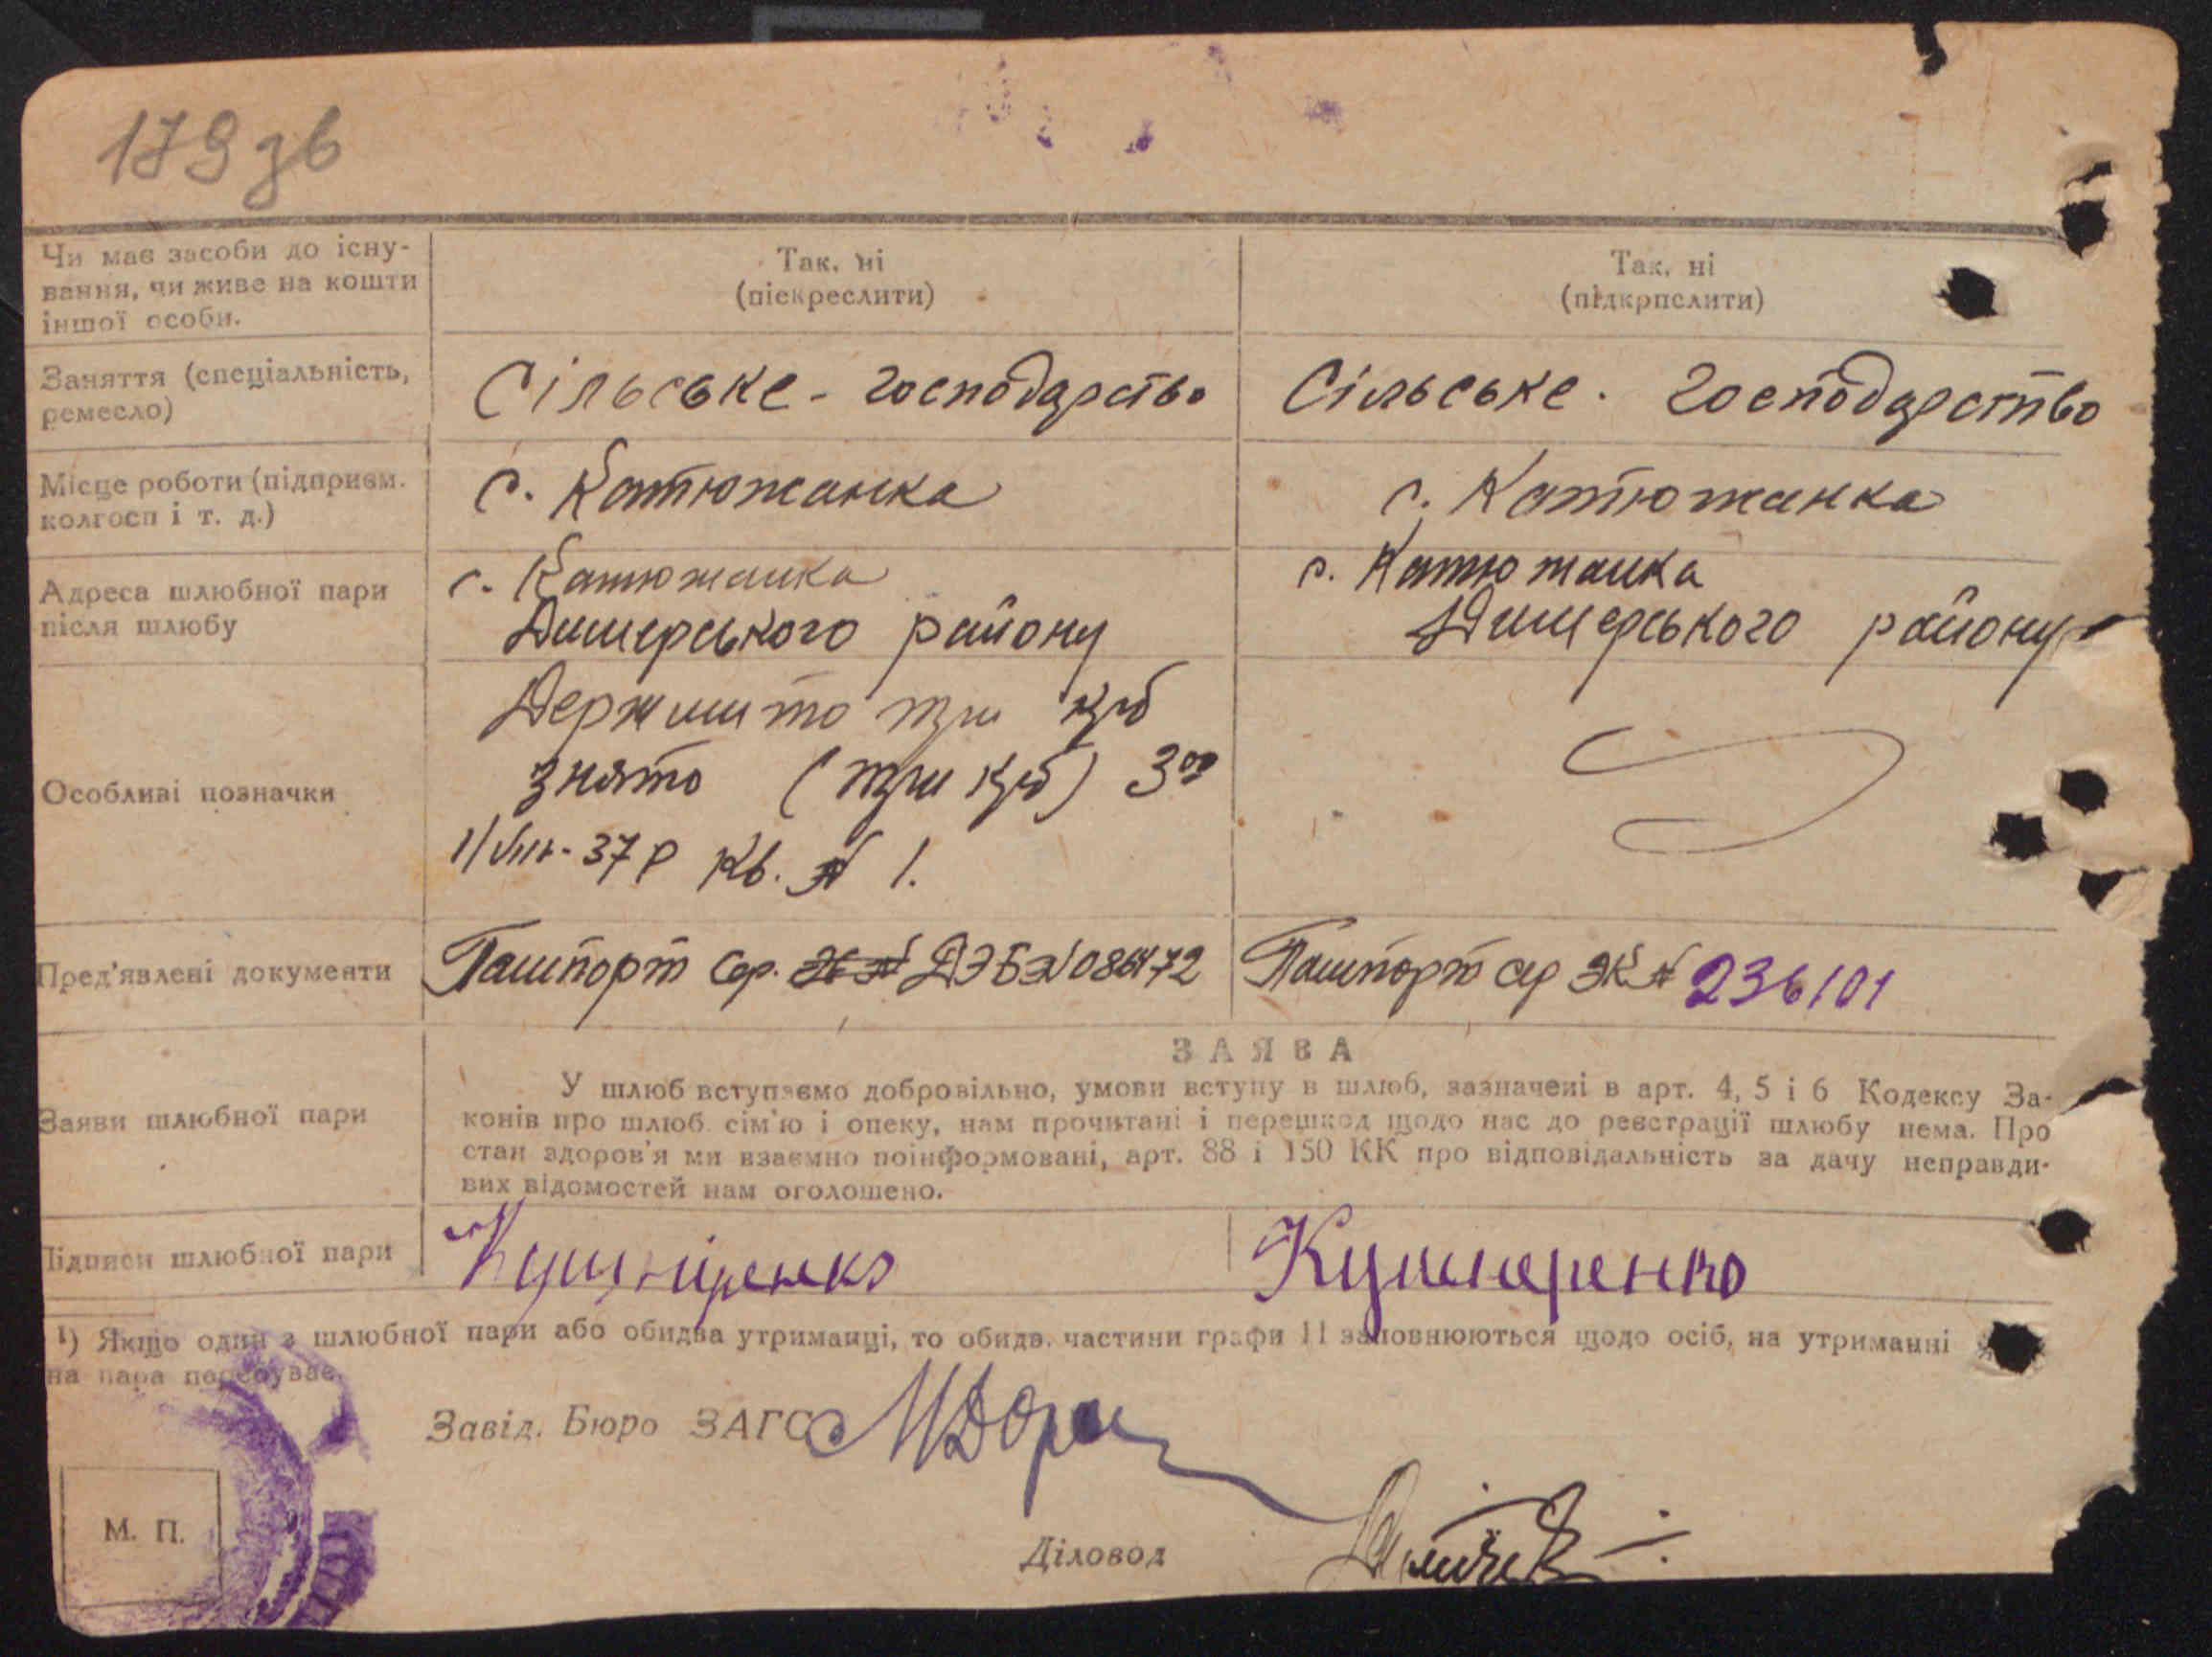 179 зв
Чи має засоби до існу-
вання, чи живе на кошти
іншої особи.
Так, ні
(піскреслити)
Так, ні
(підкрпслити)
Заняття (спеціальність,
ремесло)
Сільське - господарство
Сільське. господарство
Місце роботи (підприєм.
колгосп і т. д.)
с. Катюжанка
с. Катюжанка
Адреса шлюбної пари
після шлюбу
с. Катюжанка
Димерського району
с. Катюжанка
Димерського району
Особливі позначки
Держмито три крб
знято (три крб) 3 00
1/VIII-37 р Кв. № 1.
Пред'явлені документи
Пашпорт сер. ДЭБ №
Пашпорт сер ЭК № 236101
Заяви шлюбної пари
ЗАЯВА
У шлюб вступаємо добровільно, умови вступу в шлюб, зазначені в арт. 4, 5 і 6 Кодексу За-
конів про шлюб, сім'ю і опеку, нам прочитані і перешкод щодо нас до реєстрації шлюбу нема. Про
стан здоров'я ми взаємно поінформовані, арт. 88 і 150 КК про відповідальність за дачу неправди-
вих відомостей нам оголошено.
Підписи шлюбної пари
Кушніренко
Кушнеренко
1) Якщо один з шлюбної пари або обидва утриманці, то обидв. частини графи 11 заповнюються щодо осіб, на утриманні
на пара перебуває.
Завід. Бюро ЗАГС
М. П.
Діловод